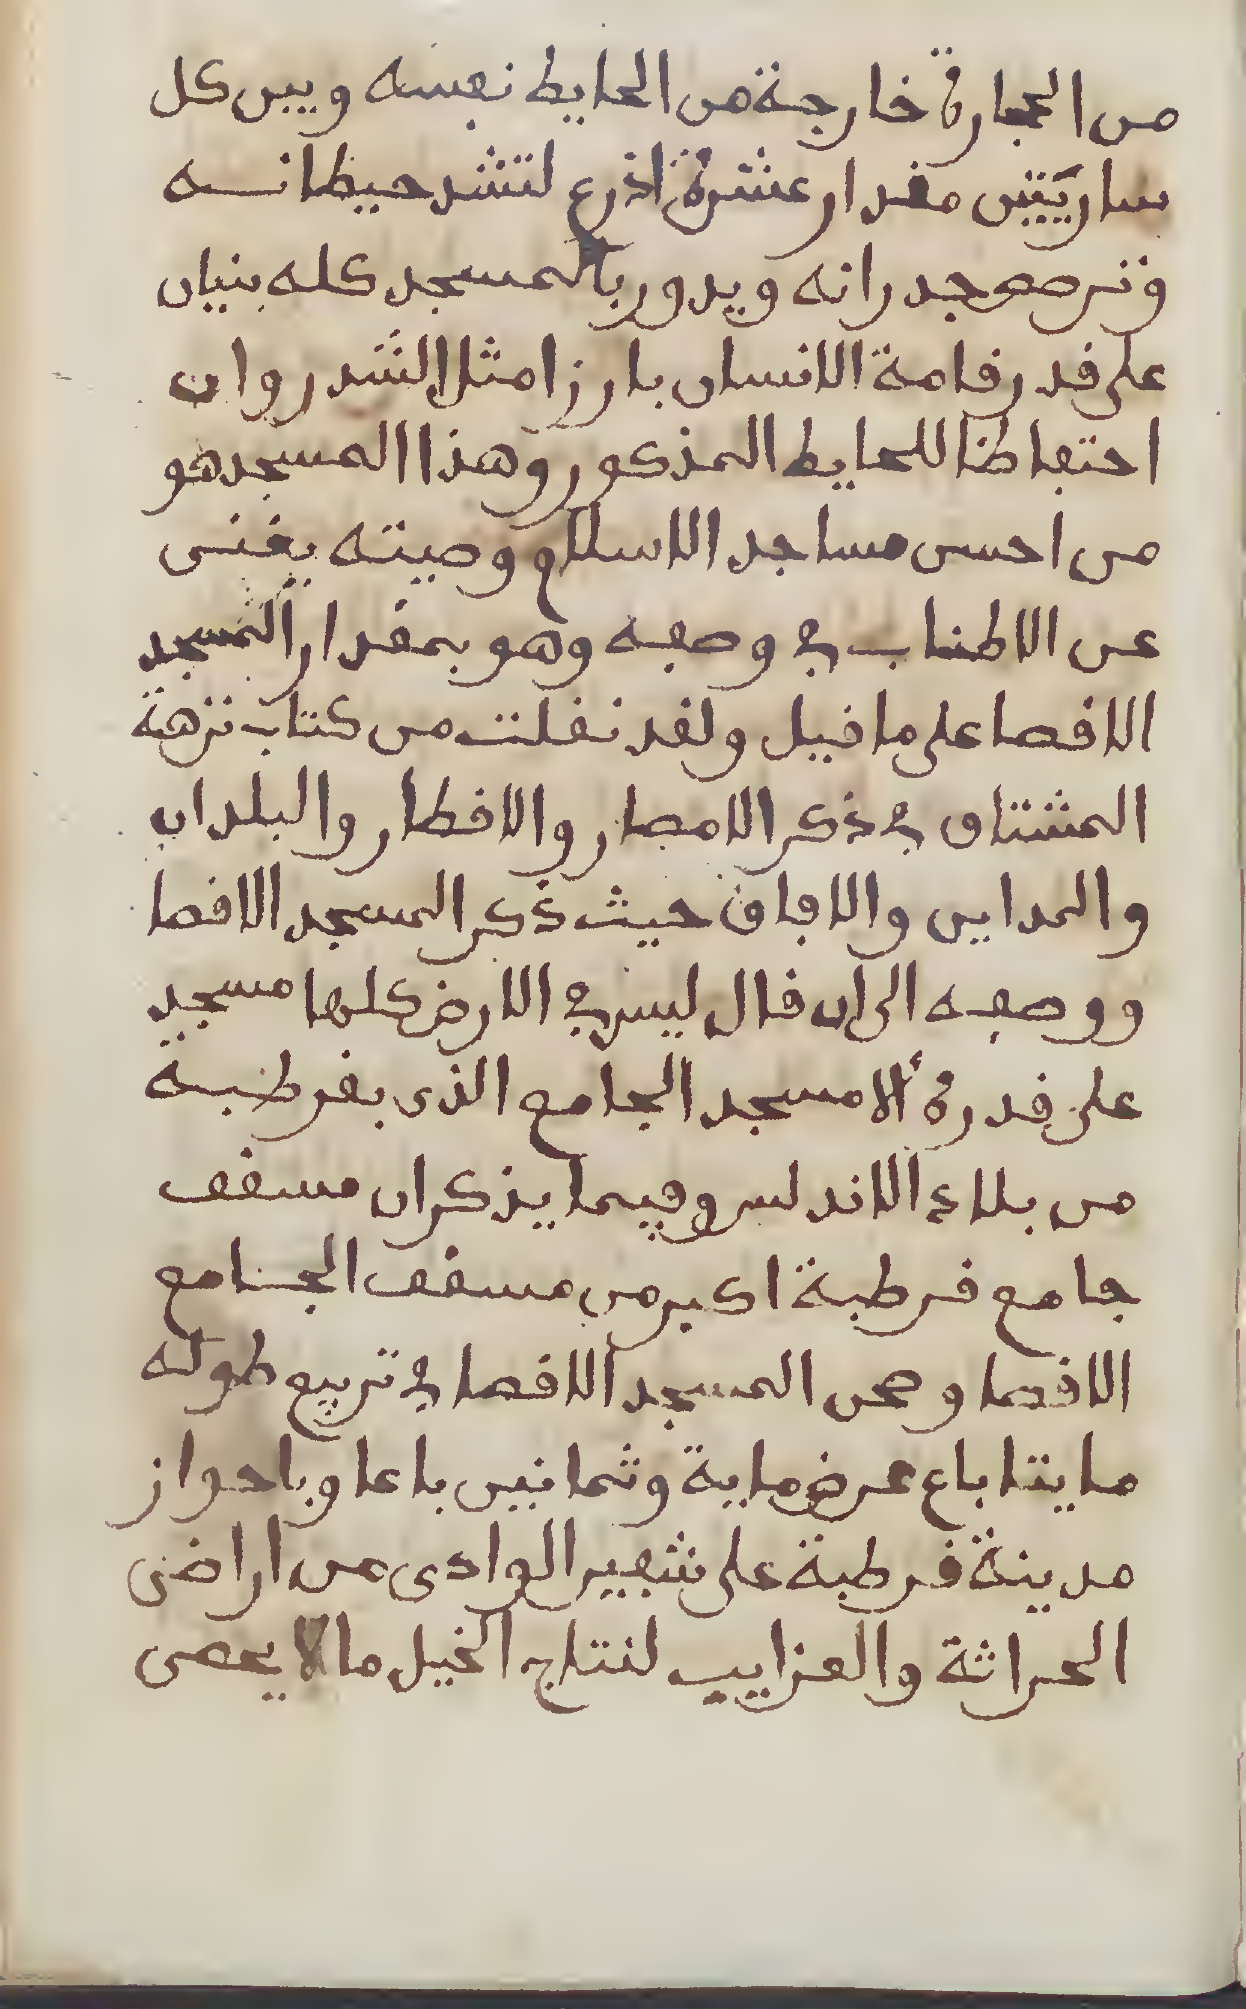 من الحجارة خارجة من الحايط نفسه وبين كل
ساريتين مقدار عشرة اذرع لتشد حيطانه
وترصع جدرانه ويدور بالمسجد كله بنيان
على قدر قامة الانسان بارزا مثل الشدروان
احتفاظا للحايط المذكور وهذا المسجد هو
من احسن مساجد الاسلام وصيته يغنى
عن الاطناب في وصفه وهو بمقدار المسجد
الاقصا على ما قيل ولقد نقلت من كتاب نزهة
المشتاق في ذكر الامصار والاقطار والبلدان
والمداين والافاق حيث ذكر المسجد الاقصا
ووصفه الى ان قال ليس في الارض كلها مسجد
على قدره الا مسجد الجامع الذى بقرطبة
من بلاد الاندلس وفيما يذكر ان مسقف
جامع قرطبة اكبر من مسقف الجامع
الاقصا وصحن المسجد الاقصا في تربيع طوله
مايتا باع عرض ماية وثمانين باعا وباحواز
مدينة قرطبة على شفير الوادى من اراضى
الحراثة والعزايب لنتاج الخيل ما لا يحصى